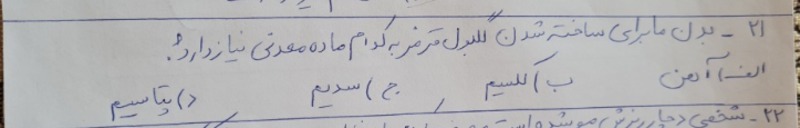 ۲۱ - بدن ما برای ساخته شدن گلبول قرمز به کدام ماده معدنی نیاز دارد؟
الف) آهن ب) کلسیم ج) سدیم د) پتاسیم
۲۲ - شخصی دچار ریزش مو شده است